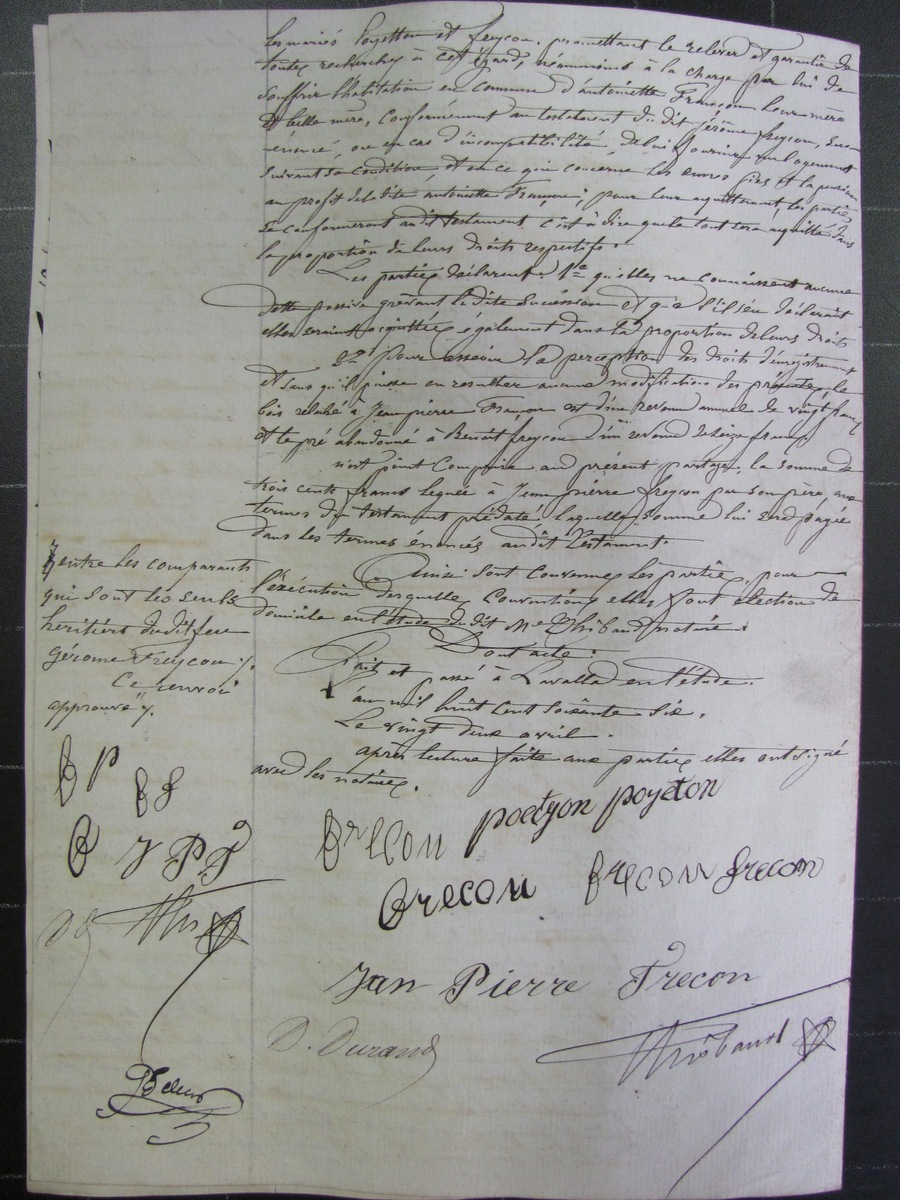 les mariés Poyetton et freycon, promettant le relever et garantir de
toutes recherches à cet égard, néanmoins à la charge par lui de
souffrir l'habitation en commun d'antoinette Françon leur mère
et belle mère, conformément au testament du dit jérôme freycon, sus
énoncé, ou en cas d'incompatibilité, de lui fournir un logement
suivant sa condition, et en ce qui concerne les œuvres pies et la pension
au profit de la dite antoinette Françon, pour leur acquittement, les parties
se conformeront au dit testament, c'est à dire que le tout sera acquitté dans
la proportion de leurs droits respectifs.
Les parties déclarent 1ent qu'elles ne connaissent aucune
dette passive grévant la dite succession et que s'il s'en déclarait
elles seraient acquittées également dans la proportion de leurs droits
2ent pour asseoir la perception des droits d'enregistrement
et sans qu'il puisse en resulter aucune modification des présentes, le
bois relaché à Jean pierre Françon est d'un revenu annuel de vingt francs
et le pré abandonné à Benoît freycon d'un revenu de seize francs.
n'est point comprise au présent partage, la somme de
trois cents francs leguée à Jean pierre freycon par son père, aux
termes du testament prédaté, laquelle somme lui sera payée
dans les termes enoncés au dit testament.
Ainsi sont convenues les parties, pour
l'exécution desquelles conventions elles font élection de
domicile en l'étude du dit Me Thibaud notaire.
Dont acte:
Fait et passé à Lavalla en l'étude.
L'an mil huit cent soixante six.
Le vingt deux avril.
après lecture faite aux parties elles ont signé
avec les notaires.
entre les comparants
qui sont les seuls
heritiers du dit feu
gérome Freycon ./.
Ce renvoi
approuvé ./.
B P
B f
B J P. F
D D Thi
frecon poetyon poyeton
Brecon frecon frecon
Jan Pierre Frecon
D. Durand Thibaud